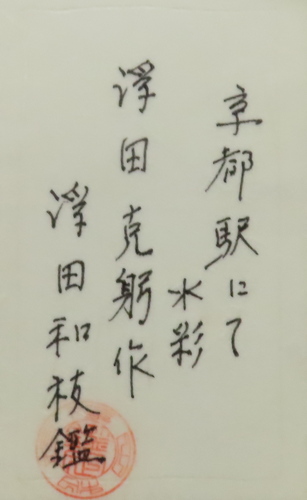 京都駅にて
水彩
浮田克躬作
浮田和枝鑑